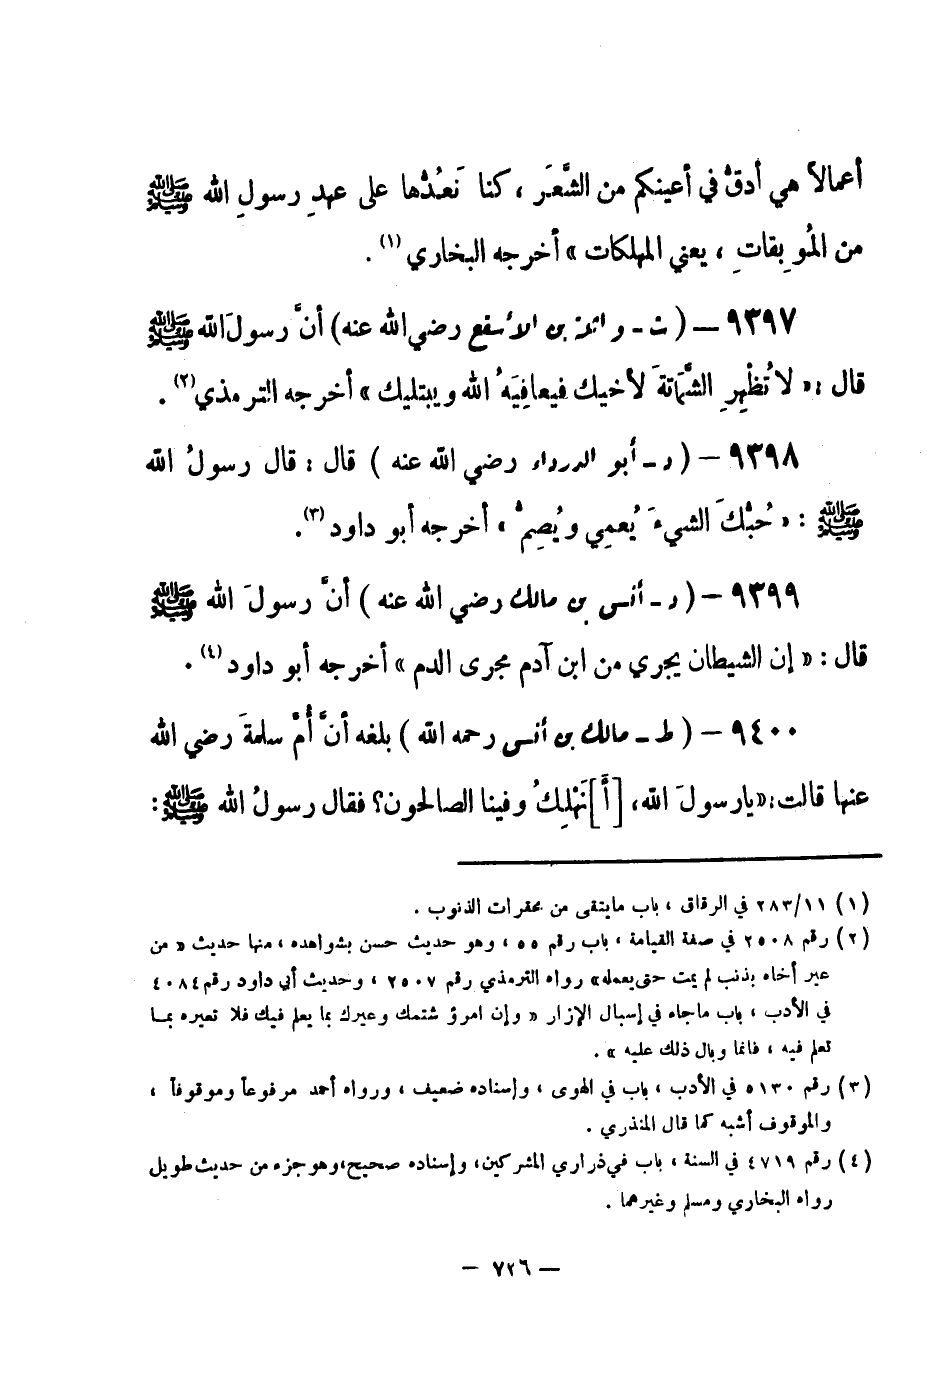 أعمالاً هي أدقُّ في أعينكم من الشَّعَر ، كنا نَعُدُّها على عهدِ رسولِ الله ﷺ
من المُوبِقاتِ ، يعني المهلكات » أخرجه البخاري (١) .
٩٣٩٧ – ( ت - واثلة بن الأسقع رضي الله عنه ) أنَّ رسولَ الله ﷺ
قال : « لا تُظْهِرِ الشَّمَاتةَ لأخيك فيعافِيَهُ الله ويبتليك » أخرجه الترمذي (٢) .
٩٣٩٨ – ( د - أبو الدرداء رضي الله عنه ) قال : قال رسولُ الله
ﷺ : « حُبُّكَ الشيءَ يُعمِي ويُصِمُّ » أخرجه أبو داود (٣) .
٩٣٩٩ – ( د - أنس بن مالك رضي الله عنه ) أنَّ رسولَ الله ﷺ
قال : « إن الشيطان يجري من ابن آدم مجرى الدم » أخرجه أبو داود (٤) .
٩٤٠٠ – ( ط - مالك بن أنس رحمه الله ) بلغه أنَّ أُمَّ سلمةَ رضي الله
عنها قالت : « يا رسولَ الله ، [أَ]نَهْلِكُ وفينا الصالحون؟ فقال رسولُ الله ﷺ :
(١) ٢٨٣/١١ في الرقاق ، باب مايتقى من محقرات الذنوب .
(٢) رقم ٢٥٠٨ في صفة القيامة ، باب رقم ٥٥ ، وهو حديث حسن بشواهده ، منها حديث « من
عير أخاه بذنب لم يمت حتى يعمله » رواه الترمذي رقم ٢٥٠٧ ، وحديث أبي داود رقم ٤٠٨٤
في الأدب ، باب ماجاء في إسبال الإزار « وإن امرؤ شتمك وعيرك بما يعلم فيك فلا تعيره بما
تعلم فيه ، فانما وبال ذلك عليه » .
(٣) رقم ٥١٣٠ في الأدب ، باب في الهوى ، وإسناده ضعيف ، ورواه أحمد مرفوعاً وموقوفاً ،
والموقوف أشبه كما قال المنذري .
(٤) رقم ٤٧١٩ في السنة ، باب في ذراري المشركين ، وإسناده صحيح ، وهو جزء من حديث طويل
رواه البخاري ومسلم وغيرهما .
– ٧٢٦ –